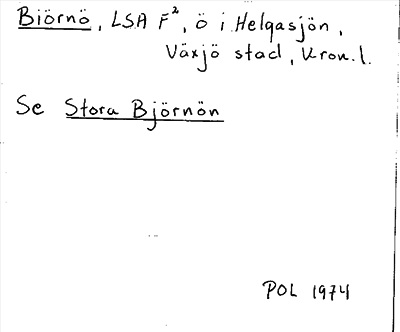 Biörnö, LSA F², ö i Helgasjön,
Växjö stad, Kron. l.
Se Stora Björnön
POL 1974